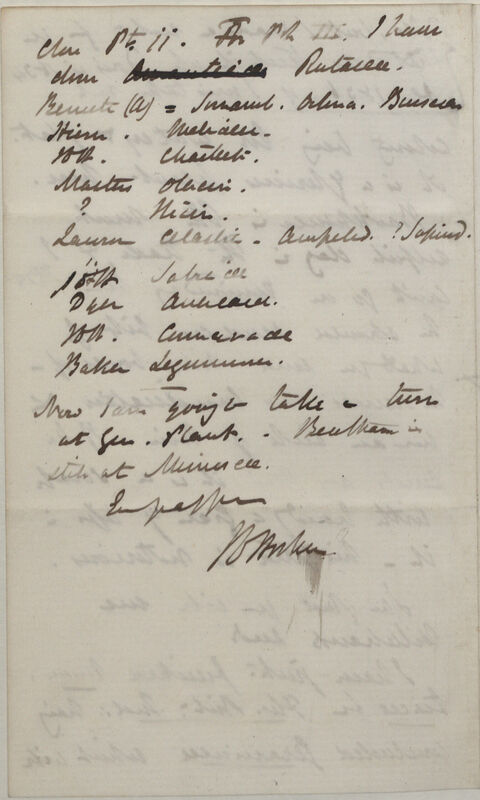 close Pt. ii. For Pt. III. I have
done Rutaceae.
Bennett (A) = Simarub. Ochna. Burserac
Hiern. Meliaceae -
JDH. Chaillet.
Masters Olacin.
? Ilicin.
Lawson Celastri - Ampelid. ? Sapind.
JDH Sabiaceae
Dyer Anacard.
JDH. Connaraceae
Baker Leguminos.
Now I am going to take a turn
at Gen. Plant. - Bentham is
still at Mimoseae.
JDHooker